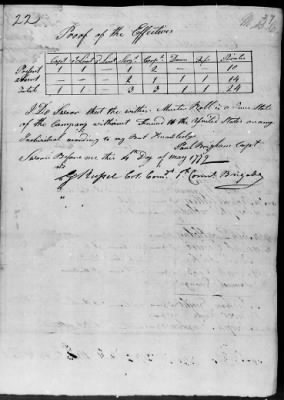 22
37
Proof of the Effectives
Capt 1 Lieut 2 Lieut Serjt Corpl Drum fife Privates
Present 1 1 - 1 2 - - 10
absent - - - 2 1 1 1 14
Total 1 1 - 3 3 1 1 24
I Do Swear that the within Muster Roll is a True State
of the Company without Fraud to the United States or any
Individual according to my Best Knowledge
Paul Brigham Capt
Sworn Before me this 4th Day of may 1779
G Russel Col. Comt. 1st Connt. Brigade